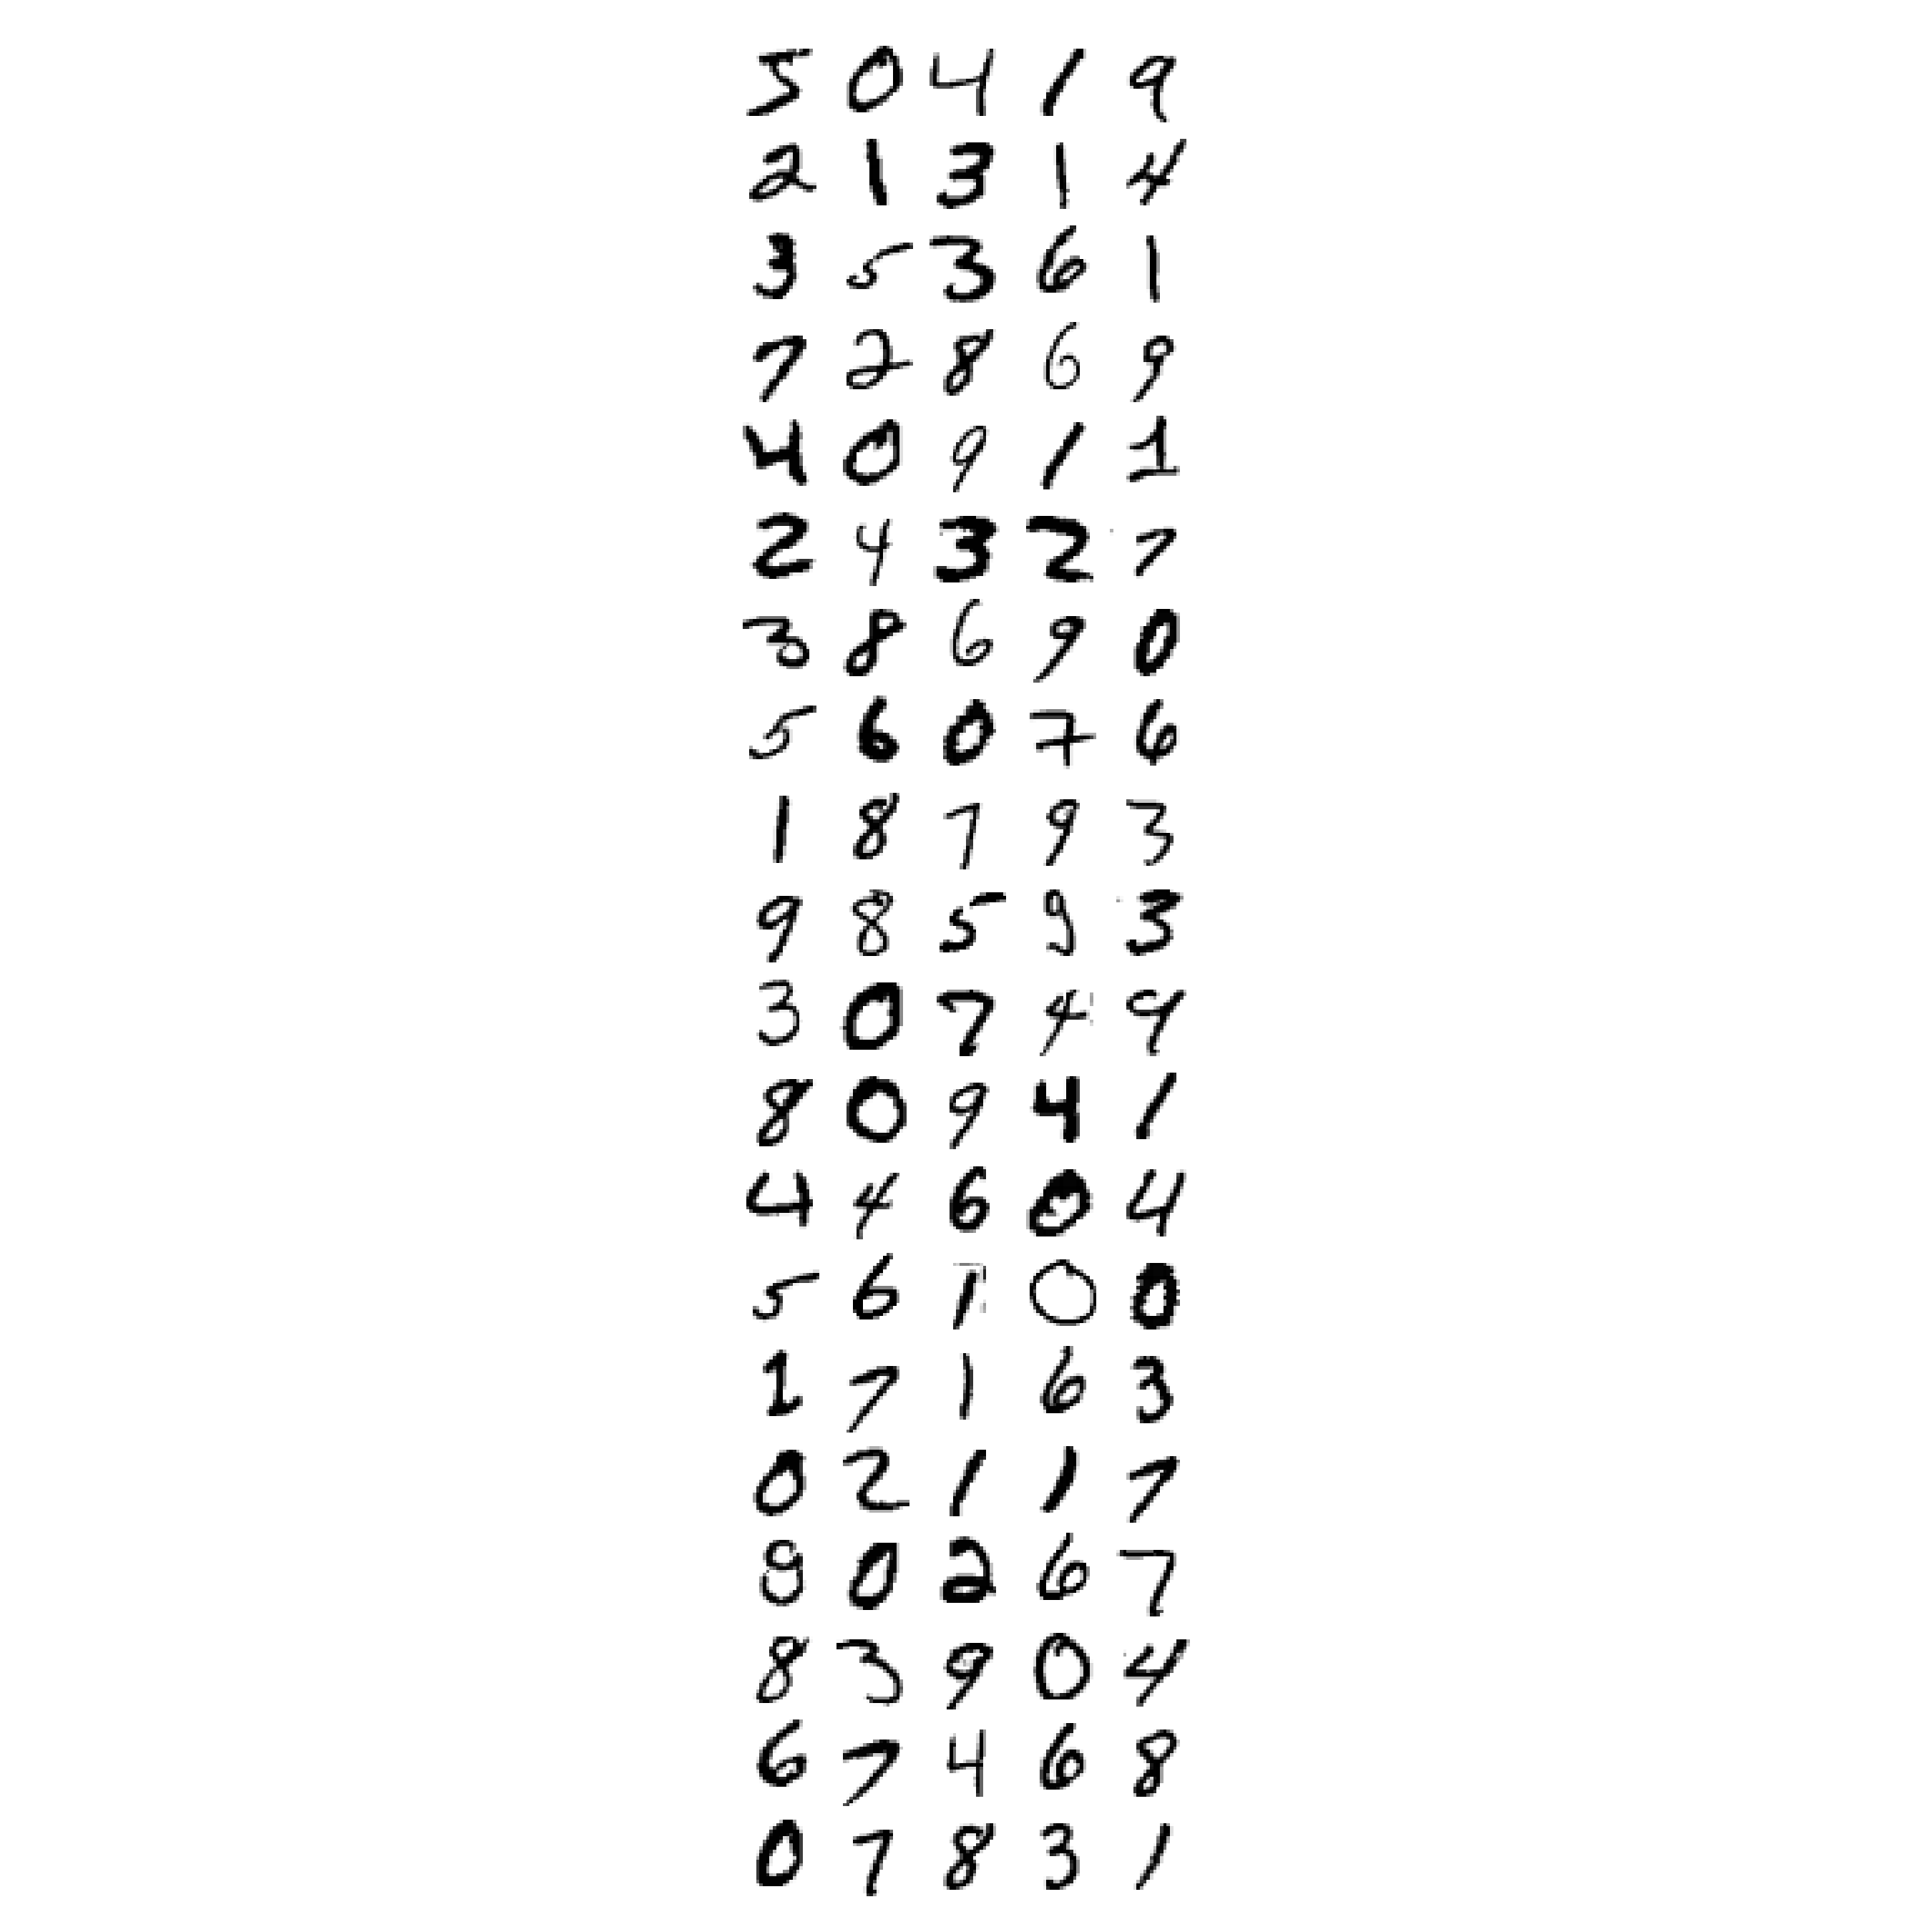 5 0 4 1 9
2 1 3 1 4
3 5 3 6 1
7 2 8 6 9
4 0 9 1 1
2 4 3 2 7
3 8 6 9 0
5 6 0 7 6
1 8 7 9 3
9 8 5 9 3
3 0 7 4 9
8 0 9 4 1
4 4 6 0 4
5 6 1 0 0
1 7 1 6 3
0 2 1 1 7
8 0 2 6 7
8 3 9 0 4
6 7 4 6 8
0 7 8 3 1